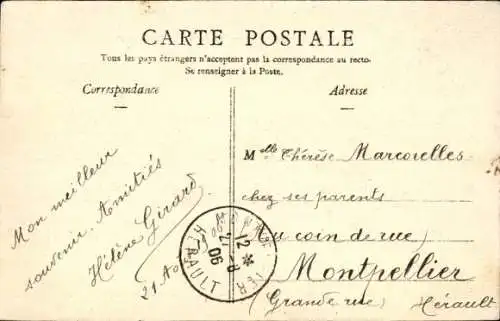 CARTE POSTALE
Tous les pays étrangers n'acceptent pas la correspondance au recto.
Se renseigner à la Poste.
Correspondance
Adresse
Mon meilleur
souvenir. Amitiés
Hélène Girard
21 Août 06
Melle Thérèse Marcorelles
chez ses parents
(au coin de rue)
Montpellier
(Grande rue) Hérault
12
21 - 8
06
HERAULT